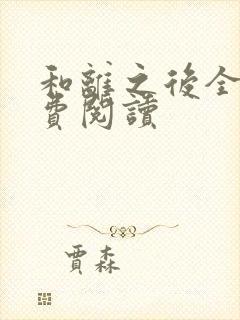 和離之後全
費閱讀
賈森